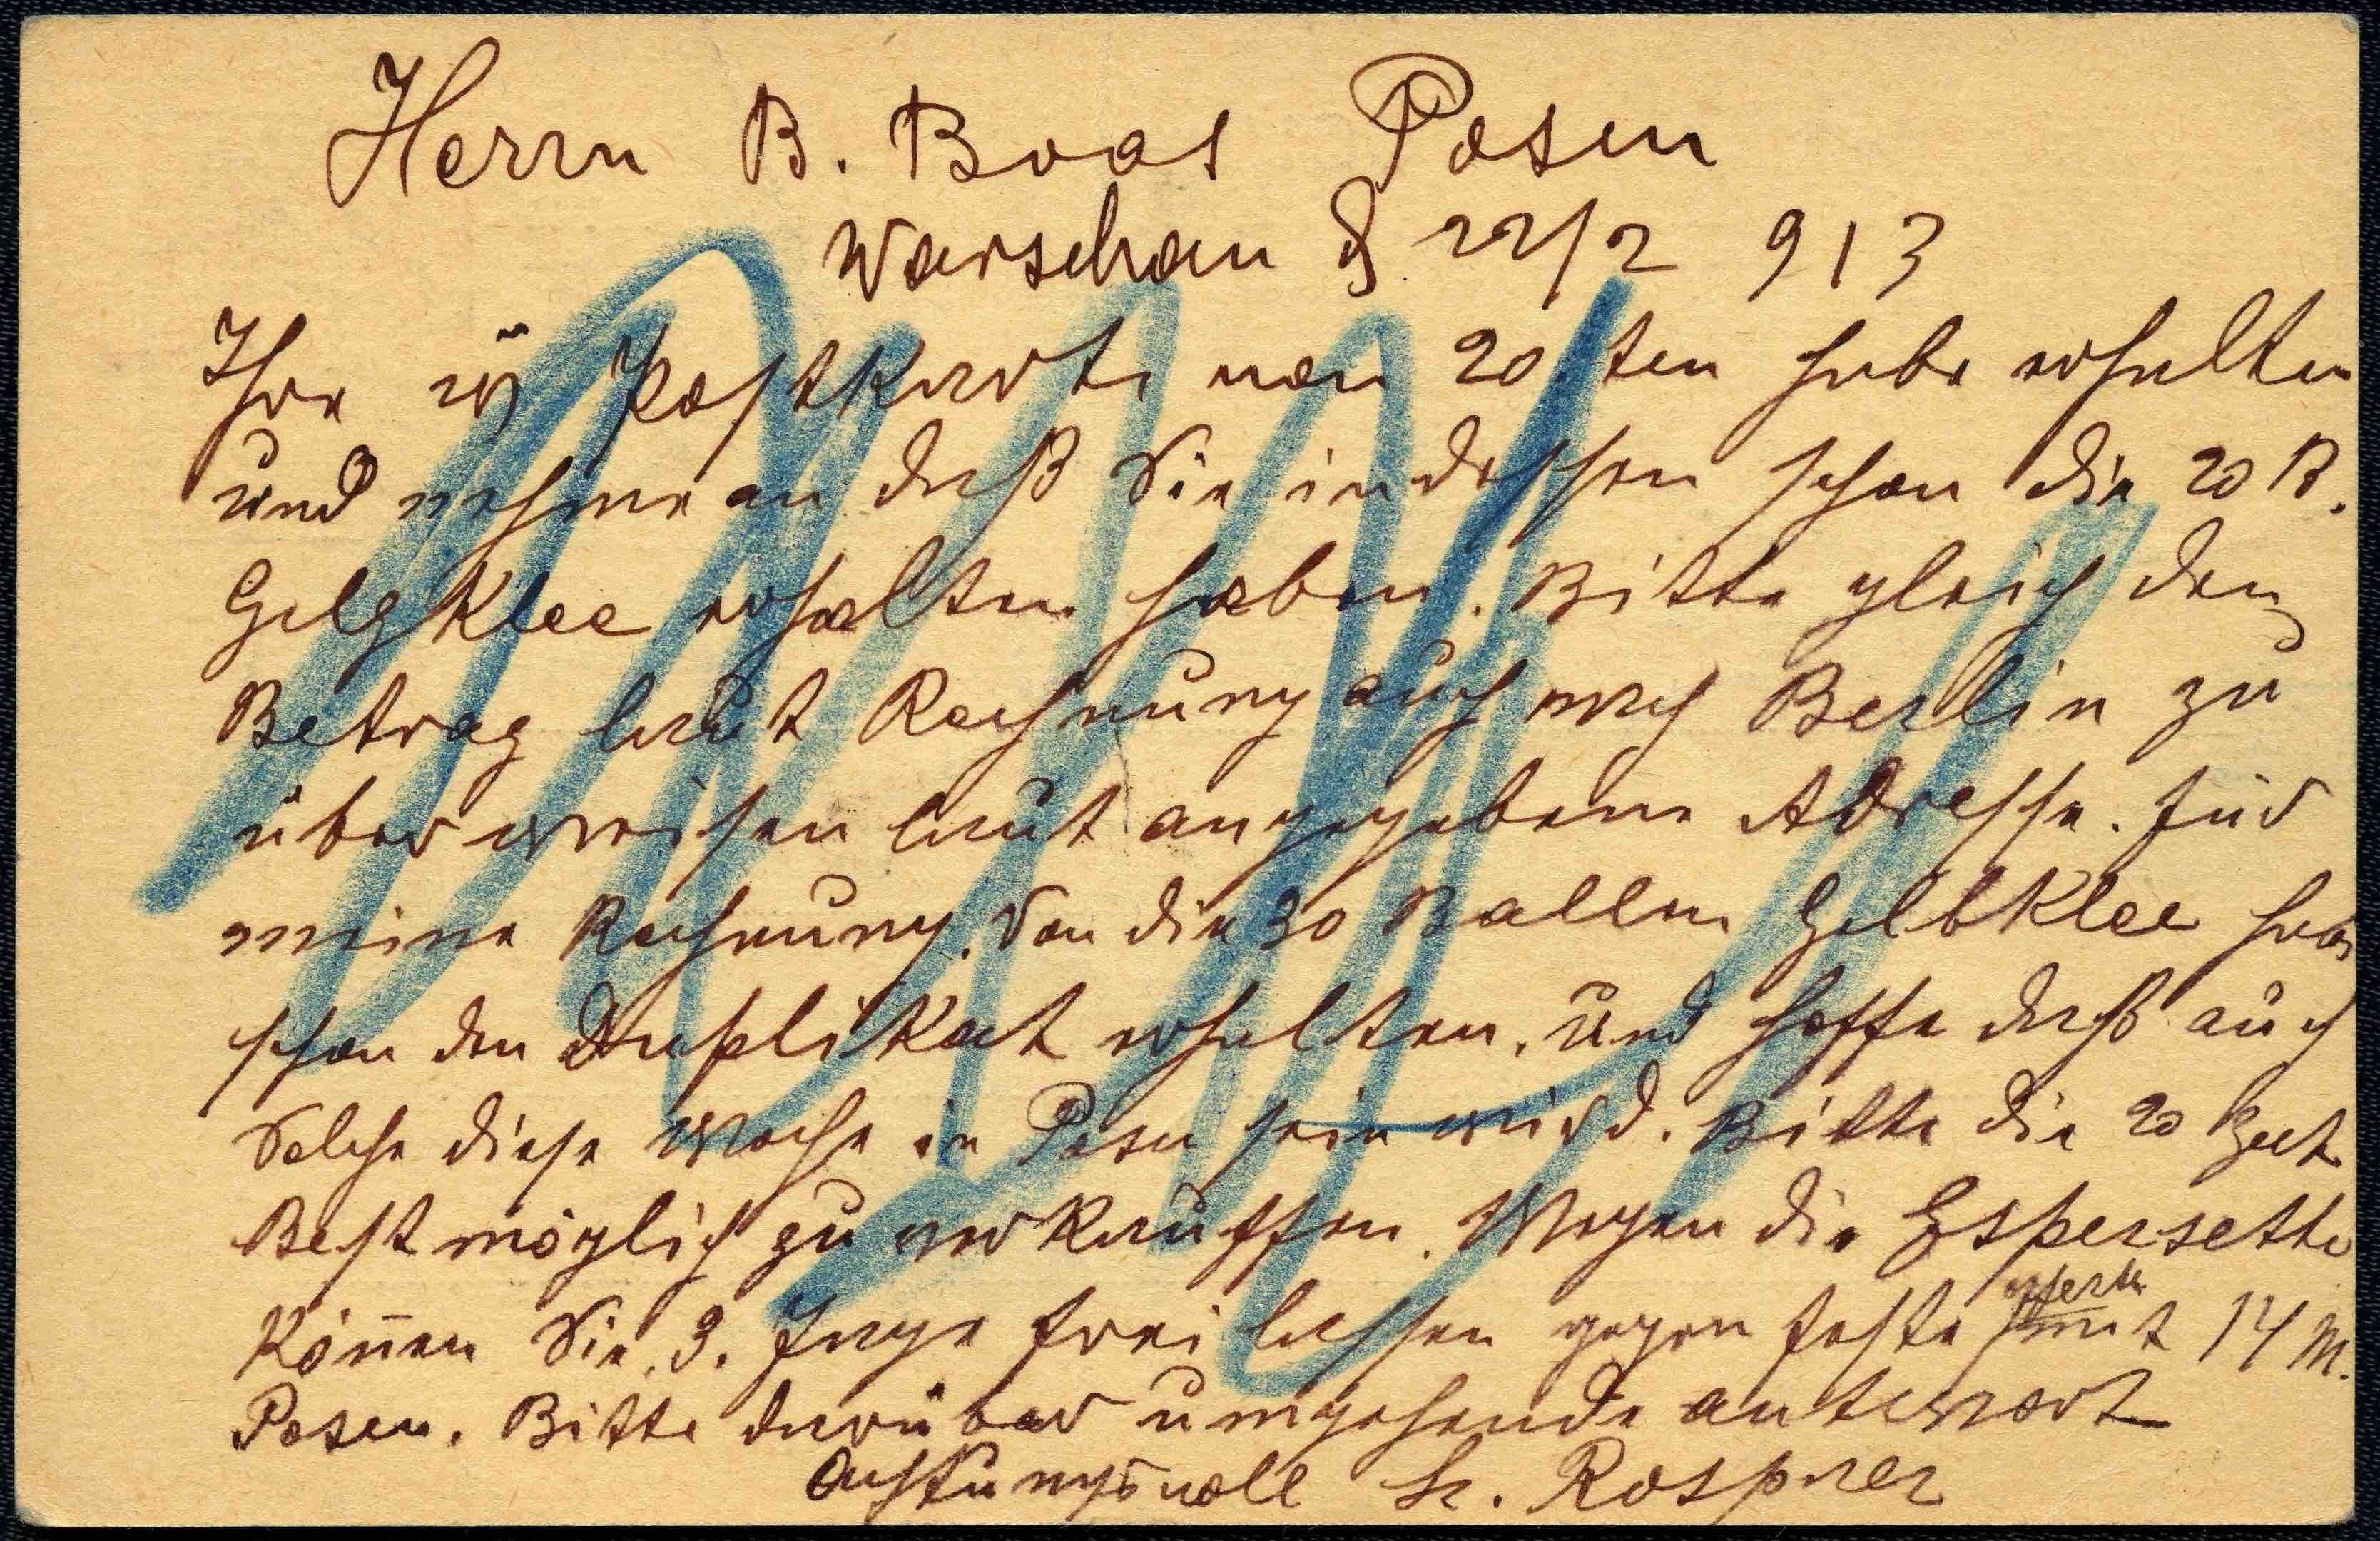 Herrn B. Boas Posen
Warschau d. 22/2 913
Ihre w Postkarte von 20ten habe erhalten
und nehme an daß Sie indessen schon die 20 B.
Gelgklee erhalten haben. Bitte gleich den
Betrag laut Rechnung auch nach Berlin zu
überweisen laut angegebene Adresse. für
meine Rechnung. Von die 30 Ballen Gelbklee habe
schon den Duplikat erhalten, und hoffe daß auch
Solche diese Woche in Posen sein wird. Bitte die 20
Bestmöglich zu verkauffen. Wegen die Espersette
Können Sie 3. Tage frei lassen gegen feste offerte mit 14 M.
Posen. Bitte darüber umgehende antwort
Achtungsvoll